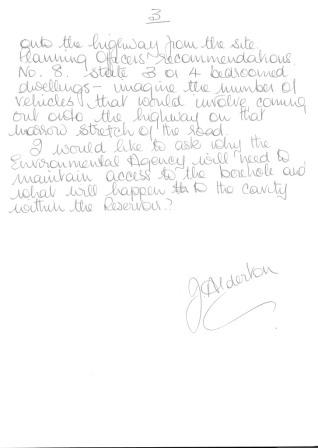 3
onto the highway from the site
Planning Officers recommendations
No. 8. state 3 or 4 bedroomed
dwellings - imagine the number of
vehicles that would involve coming
out onto the highway on that
narrow stretch of the road.
I would like to ask why the
Environmental Agency will need to
maintain access to the borehole and
what will happen to the cavity
within the Reservoir?
J Alderton